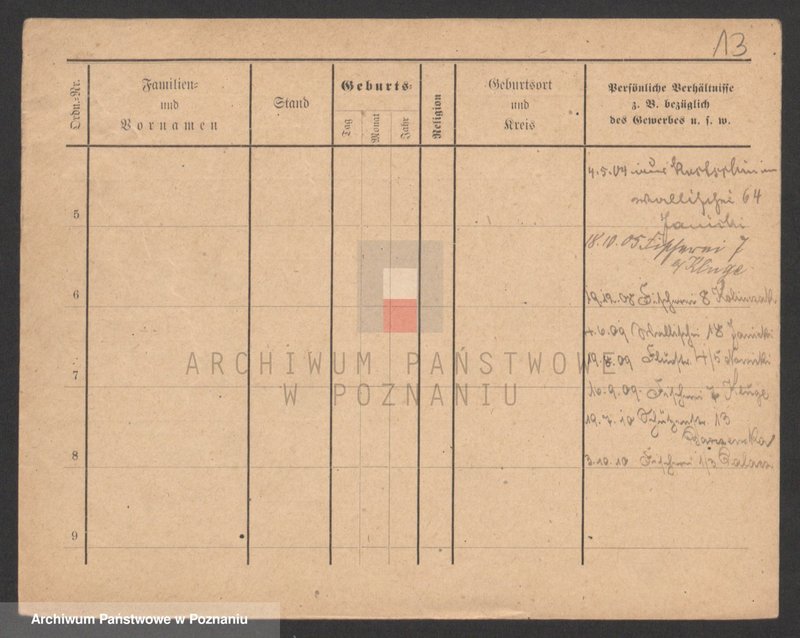 13
Ordn.-Nr.
Familien-
und
Vornamen
Stand
Geburts-
Tag
Monat
Jahr
Religion
Geburtsort
und
Kreis
Persönliche Verhältnisse
z. B. bezüglich
des Gewerbes u. s. w.
4.5.04
Wallischei 64
Janicki
5
18.10.05 Fischerei 7
b/Kluge
6
19.12.08 Fischerei 8
4.6.09 Wallischei 18 Janicki
7
19.8.09 4/5
16.9.09 Fischerei 7 Kluge
19.7.10 Schützenstr. 13
8
3.10.10 Fischerei 1/3
9
ARCHIWUM PAŃSTWOWE
W POZNANIU
Archiwum Państwowe w Poznaniu